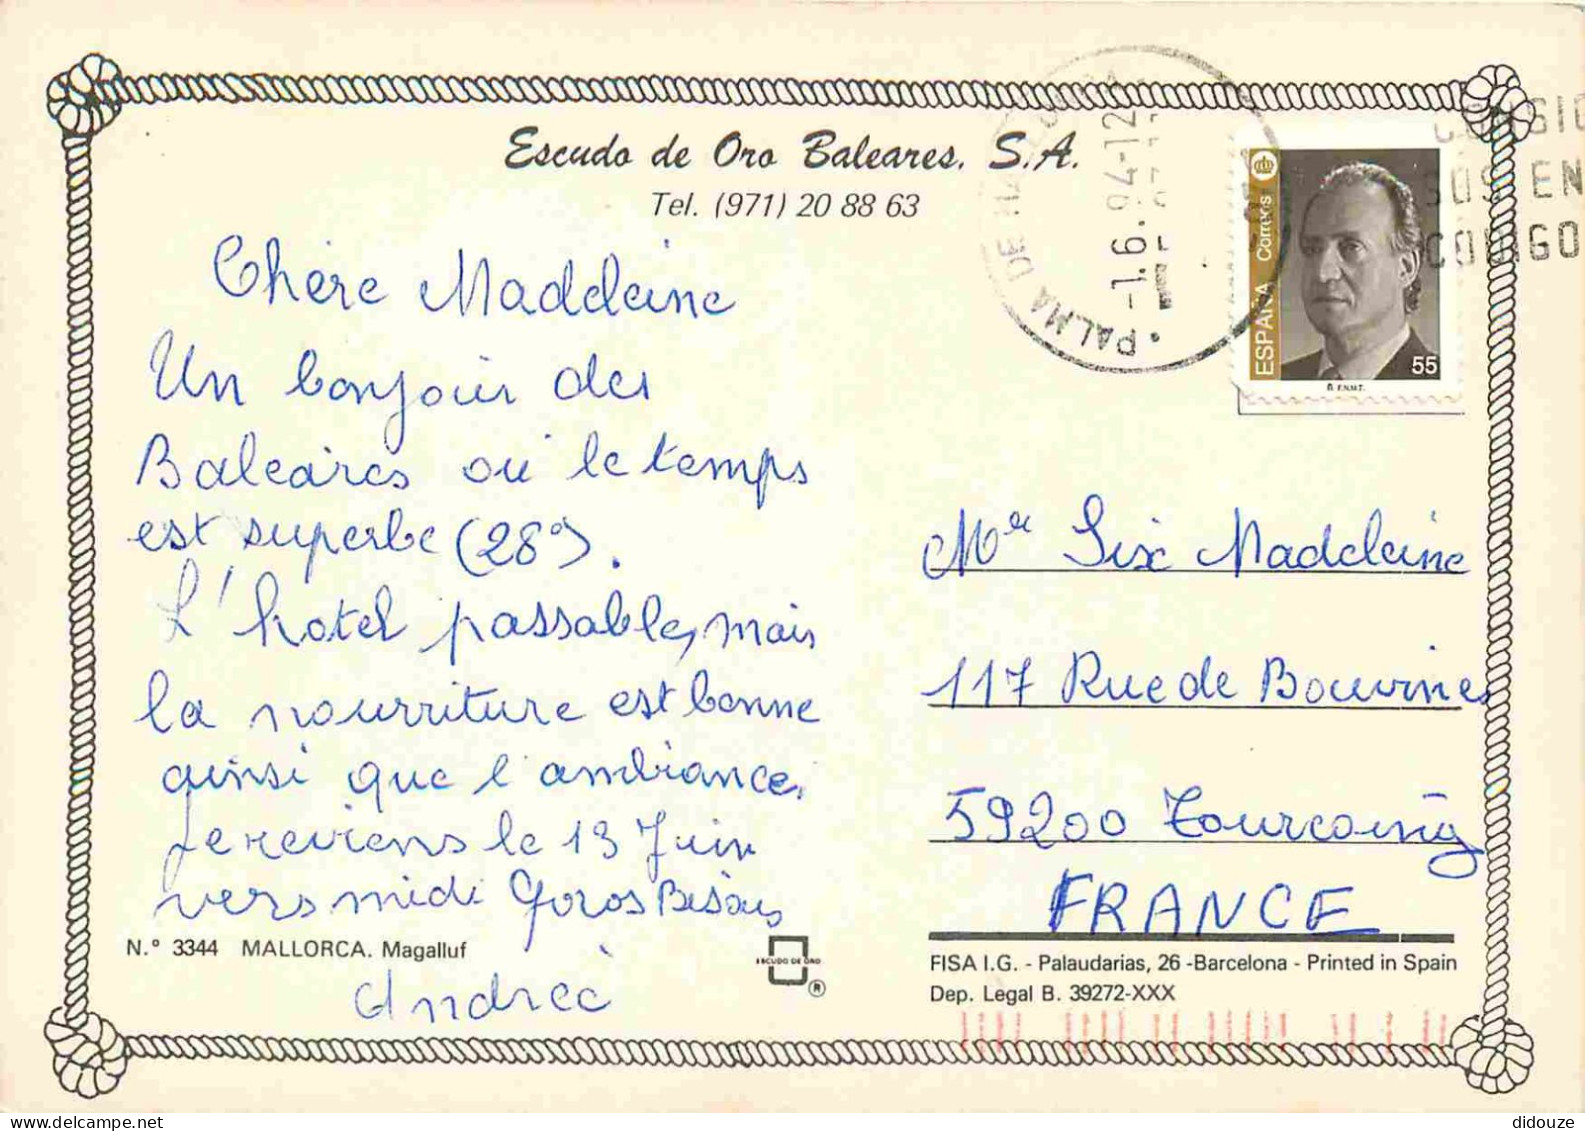 Escudo de Oro Baleares, S.A.
Tel. (971) 20 88 63
PALMA DE
-1.6.94-12
ESPAÑA Correos
55
F.N.M.T.
SUS EN
CODIGO
Chère Madeleine
Un bonjour des
Baléares où le temps
est superbe (28°).
L'hotel passable, mais
la nourriture est bonne
ainsi que l'ambiance.
Je reviens le 13 Juin
vers midi Gros Bisous
Andrée
Mme Six Madeleine
117 Rue de Bouvines
59200 Tourcoing
FRANCE
N.° 3344 MALLORCA. Magalluf
ESCUDO DE ORO
®
FISA I.G. - Palaudarias, 26 -Barcelona - Printed in Spain
Dep. Legal B. 39272-XXX
didouze